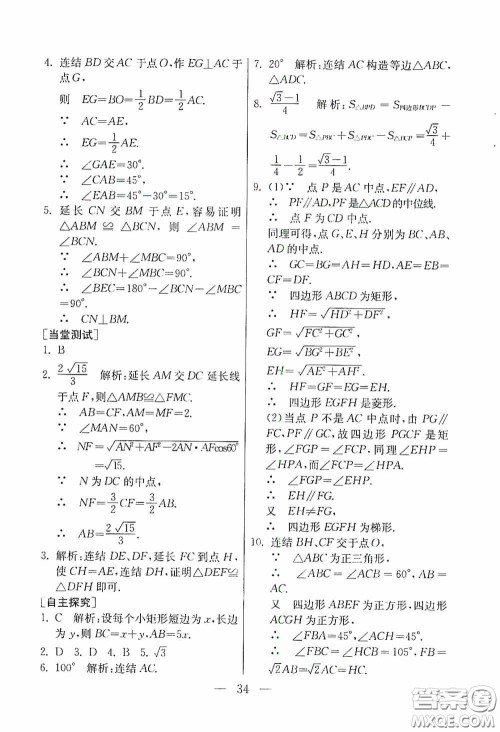 4. 连结 BD 交 AC 于点 O,作 EG⊥AC 于
点 G,
则 EG=BO=1/2 BD=1/2 AC.
∵ AC=AE,
∴ EG=1/2 AE.
∴ ∠GAE=30°.
∵ ∠CAB=45°,
∴ ∠EAB=45°−30°=15°.
5. 延长 CN 交 BM 于点 E,容易证明
△ABM≌△BCN, 则 ∠ABM =
∠BCN.
∵ ∠ABM+∠MBC=90°,
∴ ∠BCN+∠MBC=90°.
∴ ∠BEC=180°−∠BCN−∠MBC
=90°.
∴ CN⊥BM.
[当堂测试]
1. B
2. 2√15/3 解析:延长 AM 交 DC 延长线
于点 F,则△AMB≌△FMC.
∴ AB=CF,AM=MF=2.
∵ ∠MAN=60°,
∴ NF=√(AN²+AF²−2AN·AFcos60°)
=√15.
∵ N 为 DC 的中点,
∴ NF=3/2 CF=3/2 AB.
∴ AB=2√15/3.
3. 解析:连结 DE、DF,延长 FC 到点 H,
使 CH=AE,连结 DH,证明△DEF≌
△DFH 即可.
[自主探究]
1. C 解析:设每个小矩形短边为 x,长边
为 y,则 BC=x+y,AB=5x.
2. D 3. D 4. B 5. √3
6. 100° 解析:连结 AC.
7. 20° 解析:连结 AC 构造等边△ABC,
△ADC.
8. (√3−1)/4 解析:S△BPD = S四边形BCDP −
S△BCD = S△PBC + S△PDC − S△BCD = √3/4 +
1/4 − 1/2 = (√3−1)/4.
9. (1)∵ 点 P 是 AC 中点,EF∥AD,
∴ PH∥AD,PF 是△ACD 的中位线.
∴ 点 F 为 CD 中点.
同理可得,点 G、E、H 分别为 BC、AB、
AD 的中点.
∴ GC=BG=AH=HD,AE=BE=
CF=DF.
∵ 四边形 ABCD 为矩形,
∴ HF=√(HD²+DF²),
GF=√(FC²+GC²),
EG=√(BG²+BE²),
EH=√(AE²+AH²).
∴ EH=HF=FG=GE.
∴ 四边形 EGFH 是菱形.
(2)当点 P 不是 AC 中点时,由 PG∥
FC,PF∥GC,故四边形 PGCF 是矩
形,∠FGP=∠FCP,同理∠EHP=
∠HPA,而∠FCP=∠HPA.
∴ ∠FGP=∠EHP.
∴ EH∥FG.
又 EH≠FG,
∴ 四边形 EGFH 为梯形.
10. 连结 BH、CF 交于点 O,
∵ △ABC 为正三角形,
∴ ∠ABC=∠ACB=60°,AB=
AC.
又 四边形 ABEF 为正方形,四边形
ACGH 为正方形,
∴ ∠FBA=45°,∠ACH=45°,
∴ ∠FBC=∠HCB=105°, FB=
√2AB=√2AC=HC.
— 34 —
答案圈
MXQE.COM